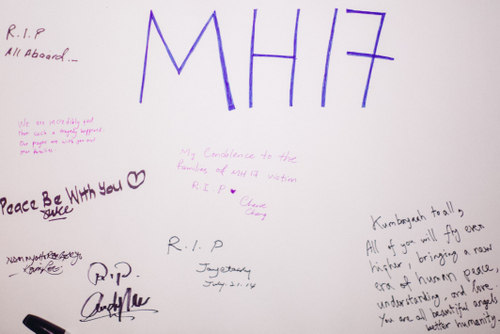 MH17
R.I.P
All Aboard...
We are incredibly sad
that such a tragedy happened
Our prayers are with you and
your families
My Condolence to the
families of MH17 victim
R.I.P ♥
Peace Be With You ♡
R.I.P
July. 21. 14
R.I.P.
Kumbayah to all,
All of you will fly even
higher, bringing a new
era of human peace,
understanding, and love.
You are all beautiful angels
better humanity.